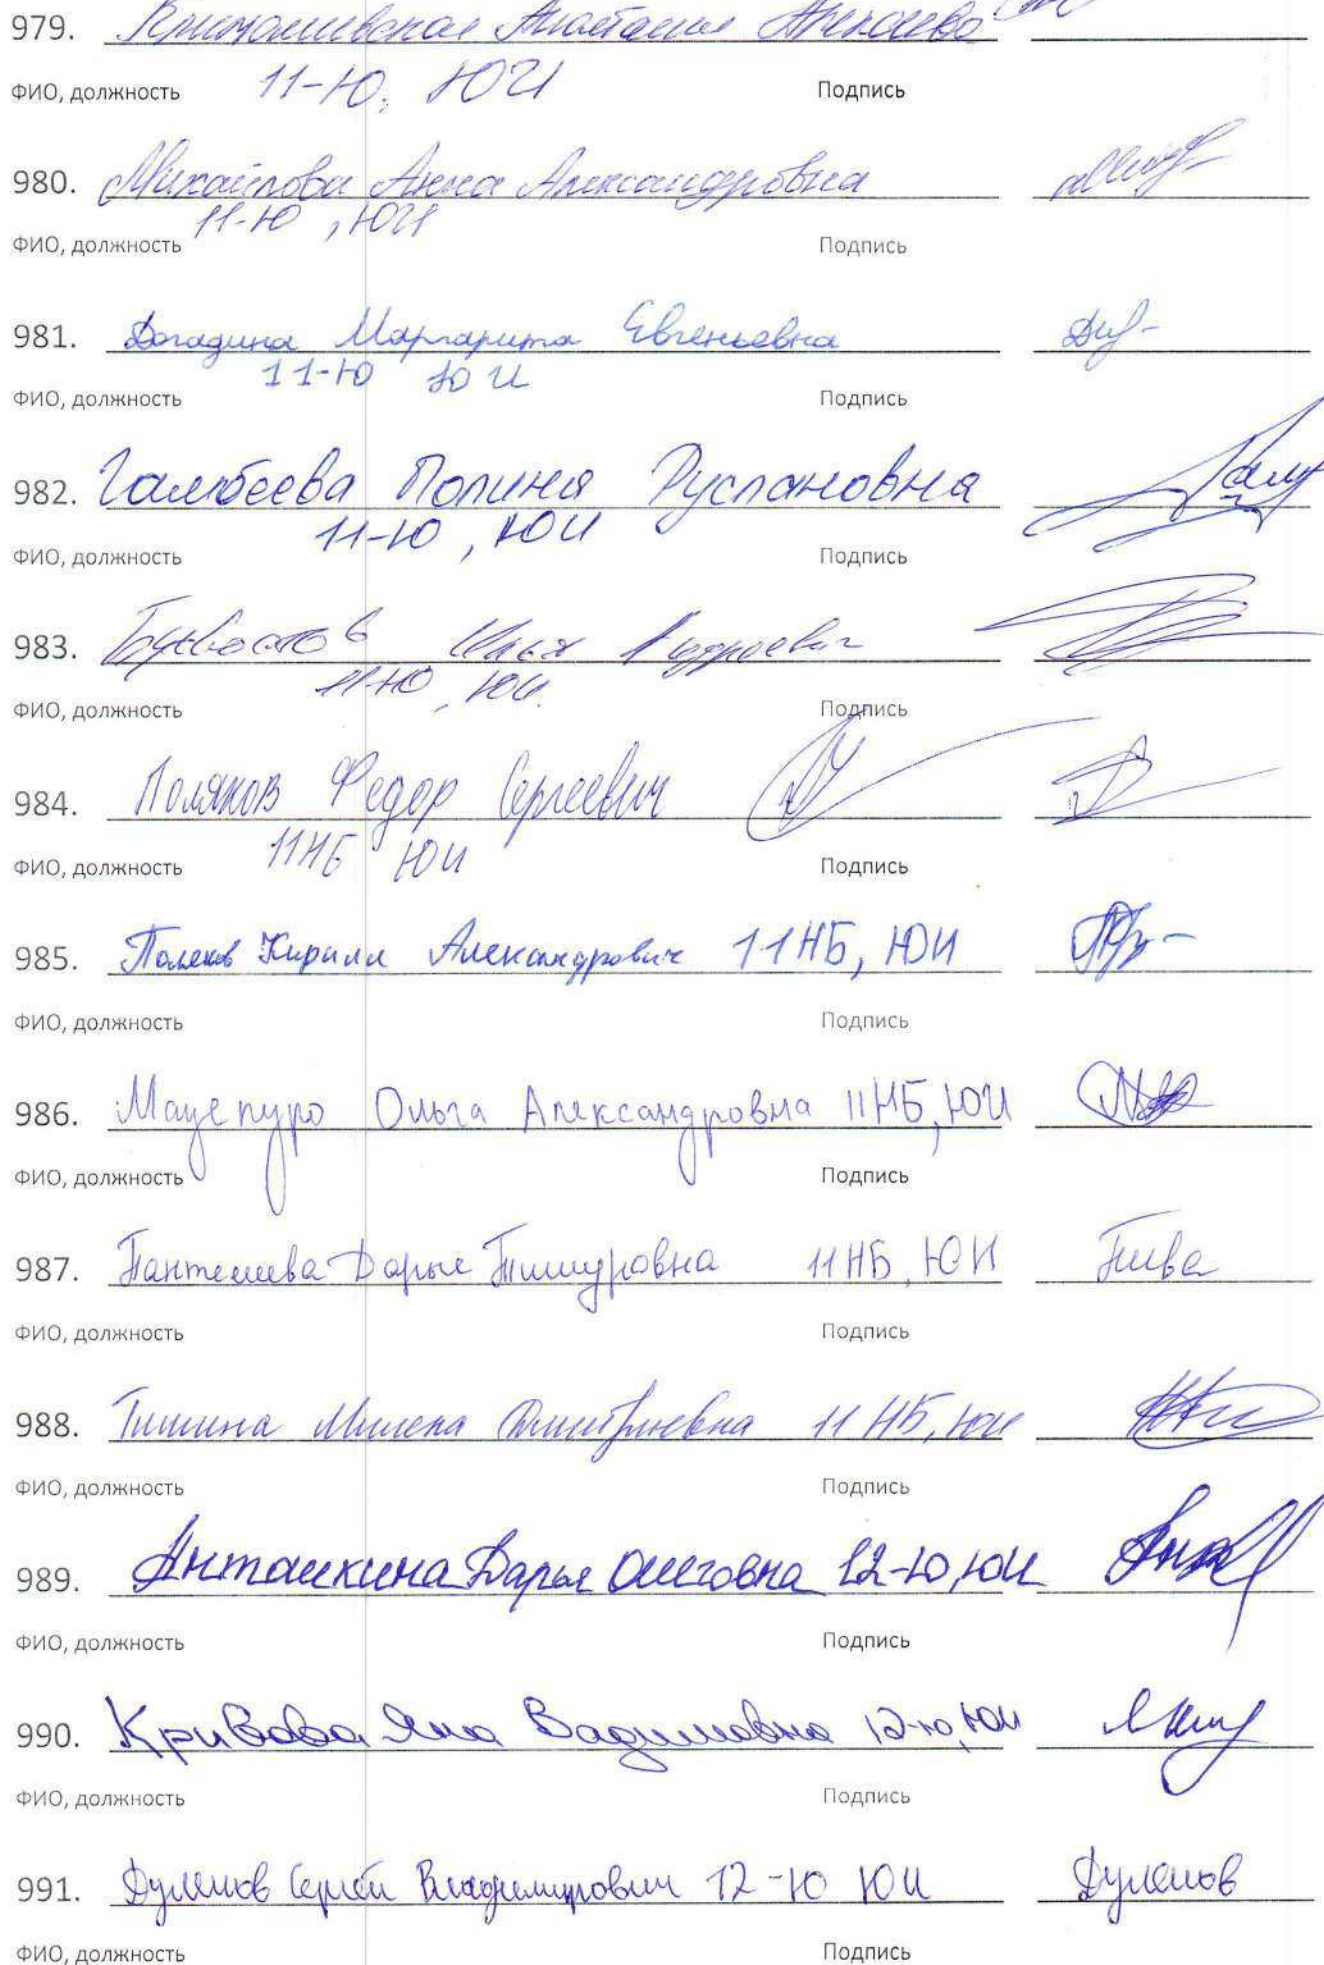 979. Анастасия
11-Ю, ЮИ
ФИО, должность Подпись
980. Михайлова Анна Александровна
11-Ю, ЮИ
ФИО, должность Подпись
981. Догадина Маргарита Евгеньевна
11-Ю ЮИ
ФИО, должность Подпись
982. Галибеева Полина Руслановна
11-Ю, ЮИ
ФИО, должность Подпись
983. Бухвостов Илья Андреевич
11-Ю, ЮИ.
ФИО, должность Подпись
984. Поляков Федор Сергеевич
11НБ ЮИ
ФИО, должность Подпись
985. Поляков Кирилл Александрович 11НБ, ЮИ
ФИО, должность Подпись
986. Мацепуро Ольга Александровна 11НБ, ЮИ
ФИО, должность Подпись
987. Пантелеева Дарья Тимуровна 11НБ, ЮИ
ФИО, должность Подпись
988. Тишина Милена Дмитриевна 11 НБ, ЮИ
ФИО, должность Подпись
989. Анташкина Дарья Олеговна 12-Ю, ЮИ
ФИО, должность Подпись
990. Кривова Яна Вадимовна 12-Ю, ЮИ
ФИО, должность Подпись
991. Дуленов Сергей Владимирович 12-Ю ЮИ Дуленов
ФИО, должность Подпись